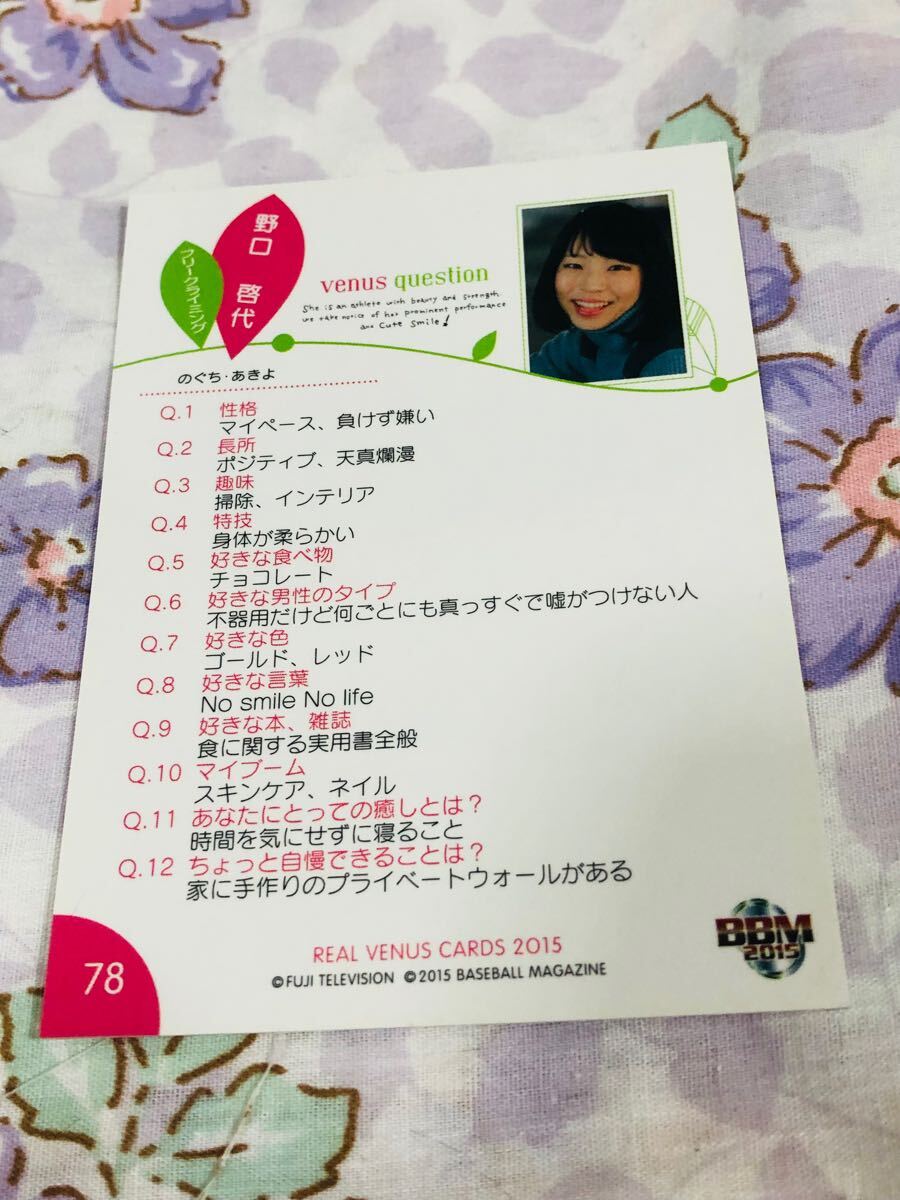 野口 啓代
フリークライミング
venus question
She is an athlete with beauty and strength
we take notice of her prominent performance
and Cute Smile!
のぐち・あきよ
Q.1 性格
マイペース、負けず嫌い
Q.2 長所
ポジティブ、天真爛漫
Q.3 趣味
掃除、インテリア
Q.4 特技
身体が柔らかい
Q.5 好きな食べ物
チョコレート
Q.6 好きな男性のタイプ
不器用だけど何ごとにも真っすぐで嘘がつけない人
Q.7 好きな色
ゴールド、レッド
Q.8 好きな言葉
No smile No life
Q.9 好きな本、雑誌
食に関する実用書全般
Q.10 マイブーム
スキンケア、ネイル
Q.11 あなたにとっての癒しとは？
時間を気にせずに寝ること
Q.12 ちょっと自慢できることは？
家に手作りのプライベートウォールがある
REAL VENUS CARDS 2015
©FUJI TELEVISION ©2015 BASEBALL MAGAZINE
78
BBM
2015